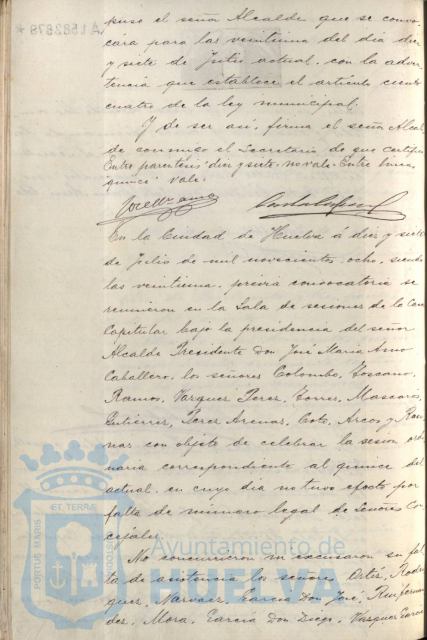 A1582878*
puso el señor Alcalde que se convo
cara para las veintiuna del dia diez
y siete de Julio actual, con la adver
tencia que establece el artículo ciento
cuatro de la ley municipal.
Y de ser así, firma el señor Alcal
de conmigo el Secretario de que certifico
Entre parentesis "diez y siete" no vale. Entre lineas
quince vale.
En la Ciudad de Huelva á diez y siete
de Julio de mil novecientos ocho, siendo
las veintiuna, previa convocatoria se
reunieron en la Sala de sesiones de la Casa
Capitular bajo la presidencia del señor
Alcalde Presidente Don José Maria Amo
Caballero, los señores Colombo, Toscano,
Ramos, Vazquez Perez, Torres, Mascarós,
Gutiérrez, Perez Arenas, Coto, Arcos y
con objeto de celebrar la sesion ordi
naria correspondiente al quince del
actual, en cuyo dia no tuvo efecto por
falta de número legal de Señores Con
cejales.
No concurrieron ni excusaron su fal
ta de asistencia los señores Ortiz, Rodri
guez, Narvaez, Garcia Don José, Ruifernan
dez, Mora, Garcia Don Diego, Vazquez Garcia
PORTUS MARIS
ET TERRÆ
CUSTODIA
Ayuntamiento de
HUELVA